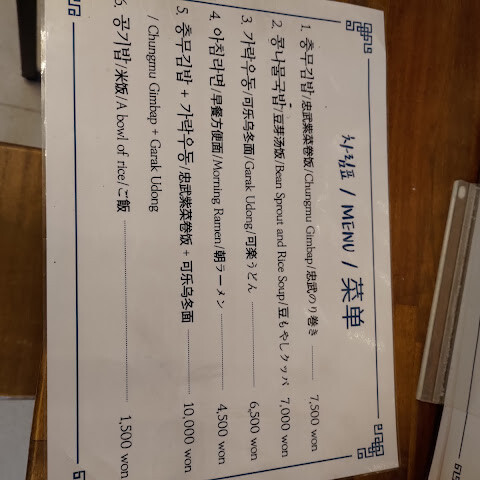 차림표 / MENU / 菜单
1. 충무김밥/忠武紫菜卷饭/Chungmu Gimbap/忠武のり巻き 7,500 won
2. 콩나물국밥/豆芽汤饭/Bean Sprout and Rice Soup/豆もやしクッパ 7,000 won
3. 가락우동/可乐乌冬面/Garak Udong/可楽うどん 6,500 won
4. 아침라면/早餐方便面/Morning Ramen/朝ラーメン 4,500 won
5. 충무김밥 + 가락우동/忠武紫菜卷饭 + 可乐乌冬面 10,000 won
/ Chungmu Gimbap + Garak Udong
6. 공기밥/米饭/A bowl of rice/ご飯 1,500 won